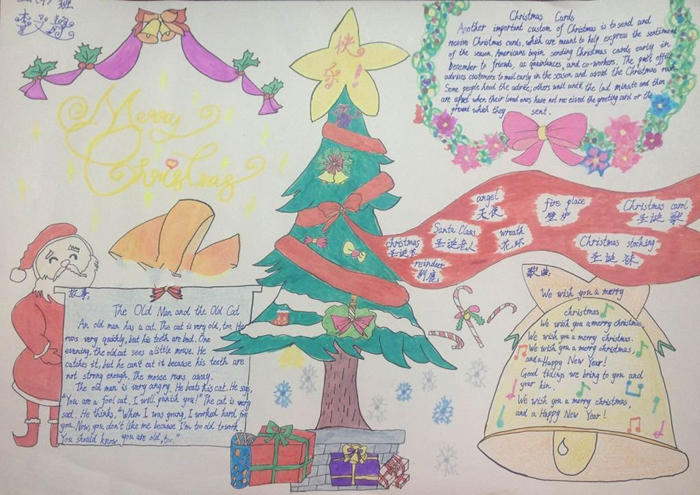 班
Merry
Christmas
快
乐!
Christmas Cards
Another important custom of Christmas is to send and
receive Christmas cards, which are meant to help express the sentiment
of the season. Americans begin sending Christmas cards early in
December to friends, acquaintances, and co-workers. The post office
advises customers to mail early in the season and avoid the Christmas rush.
Some people heed the advice; others wait until the last minute and then
are upset when their loved ones have not received the greeting card or the
present which they sent.
angel
天使
fire place
壁炉
Christmas carol
圣诞歌
Santa Claus
圣诞老人
wreath
花环
Christmas stocking
圣诞袜
christmas
圣诞
reindeer
驯鹿
故事
The Old Man and the Old Cat
An old man has a cat. The cat is very old, too. He
runs very quickly, but his teeth are bad. One
evening, the old cat sees a little mouse. He
catches it, but he can't eat it because his teeth are
not strong enough. The mouse runs away.
The old man is very angry. He beats his cat. He says,
"You are a fool cat, I will punish you!" The cat is very
sad. He thinks, "When I was young, I worked hard for
you. Now you don't like me because I'm too old to work.
You should know you are old, too."
歌曲
We wish you a merry
christmas
We wish you a merry christmas,
We wish you a merry christmas,
We wish you a merry christmas,
and a Happy New Year!
Good tidings we bring to you and
your kin.
We wish you a merry christmas,
and a Happy New Year!